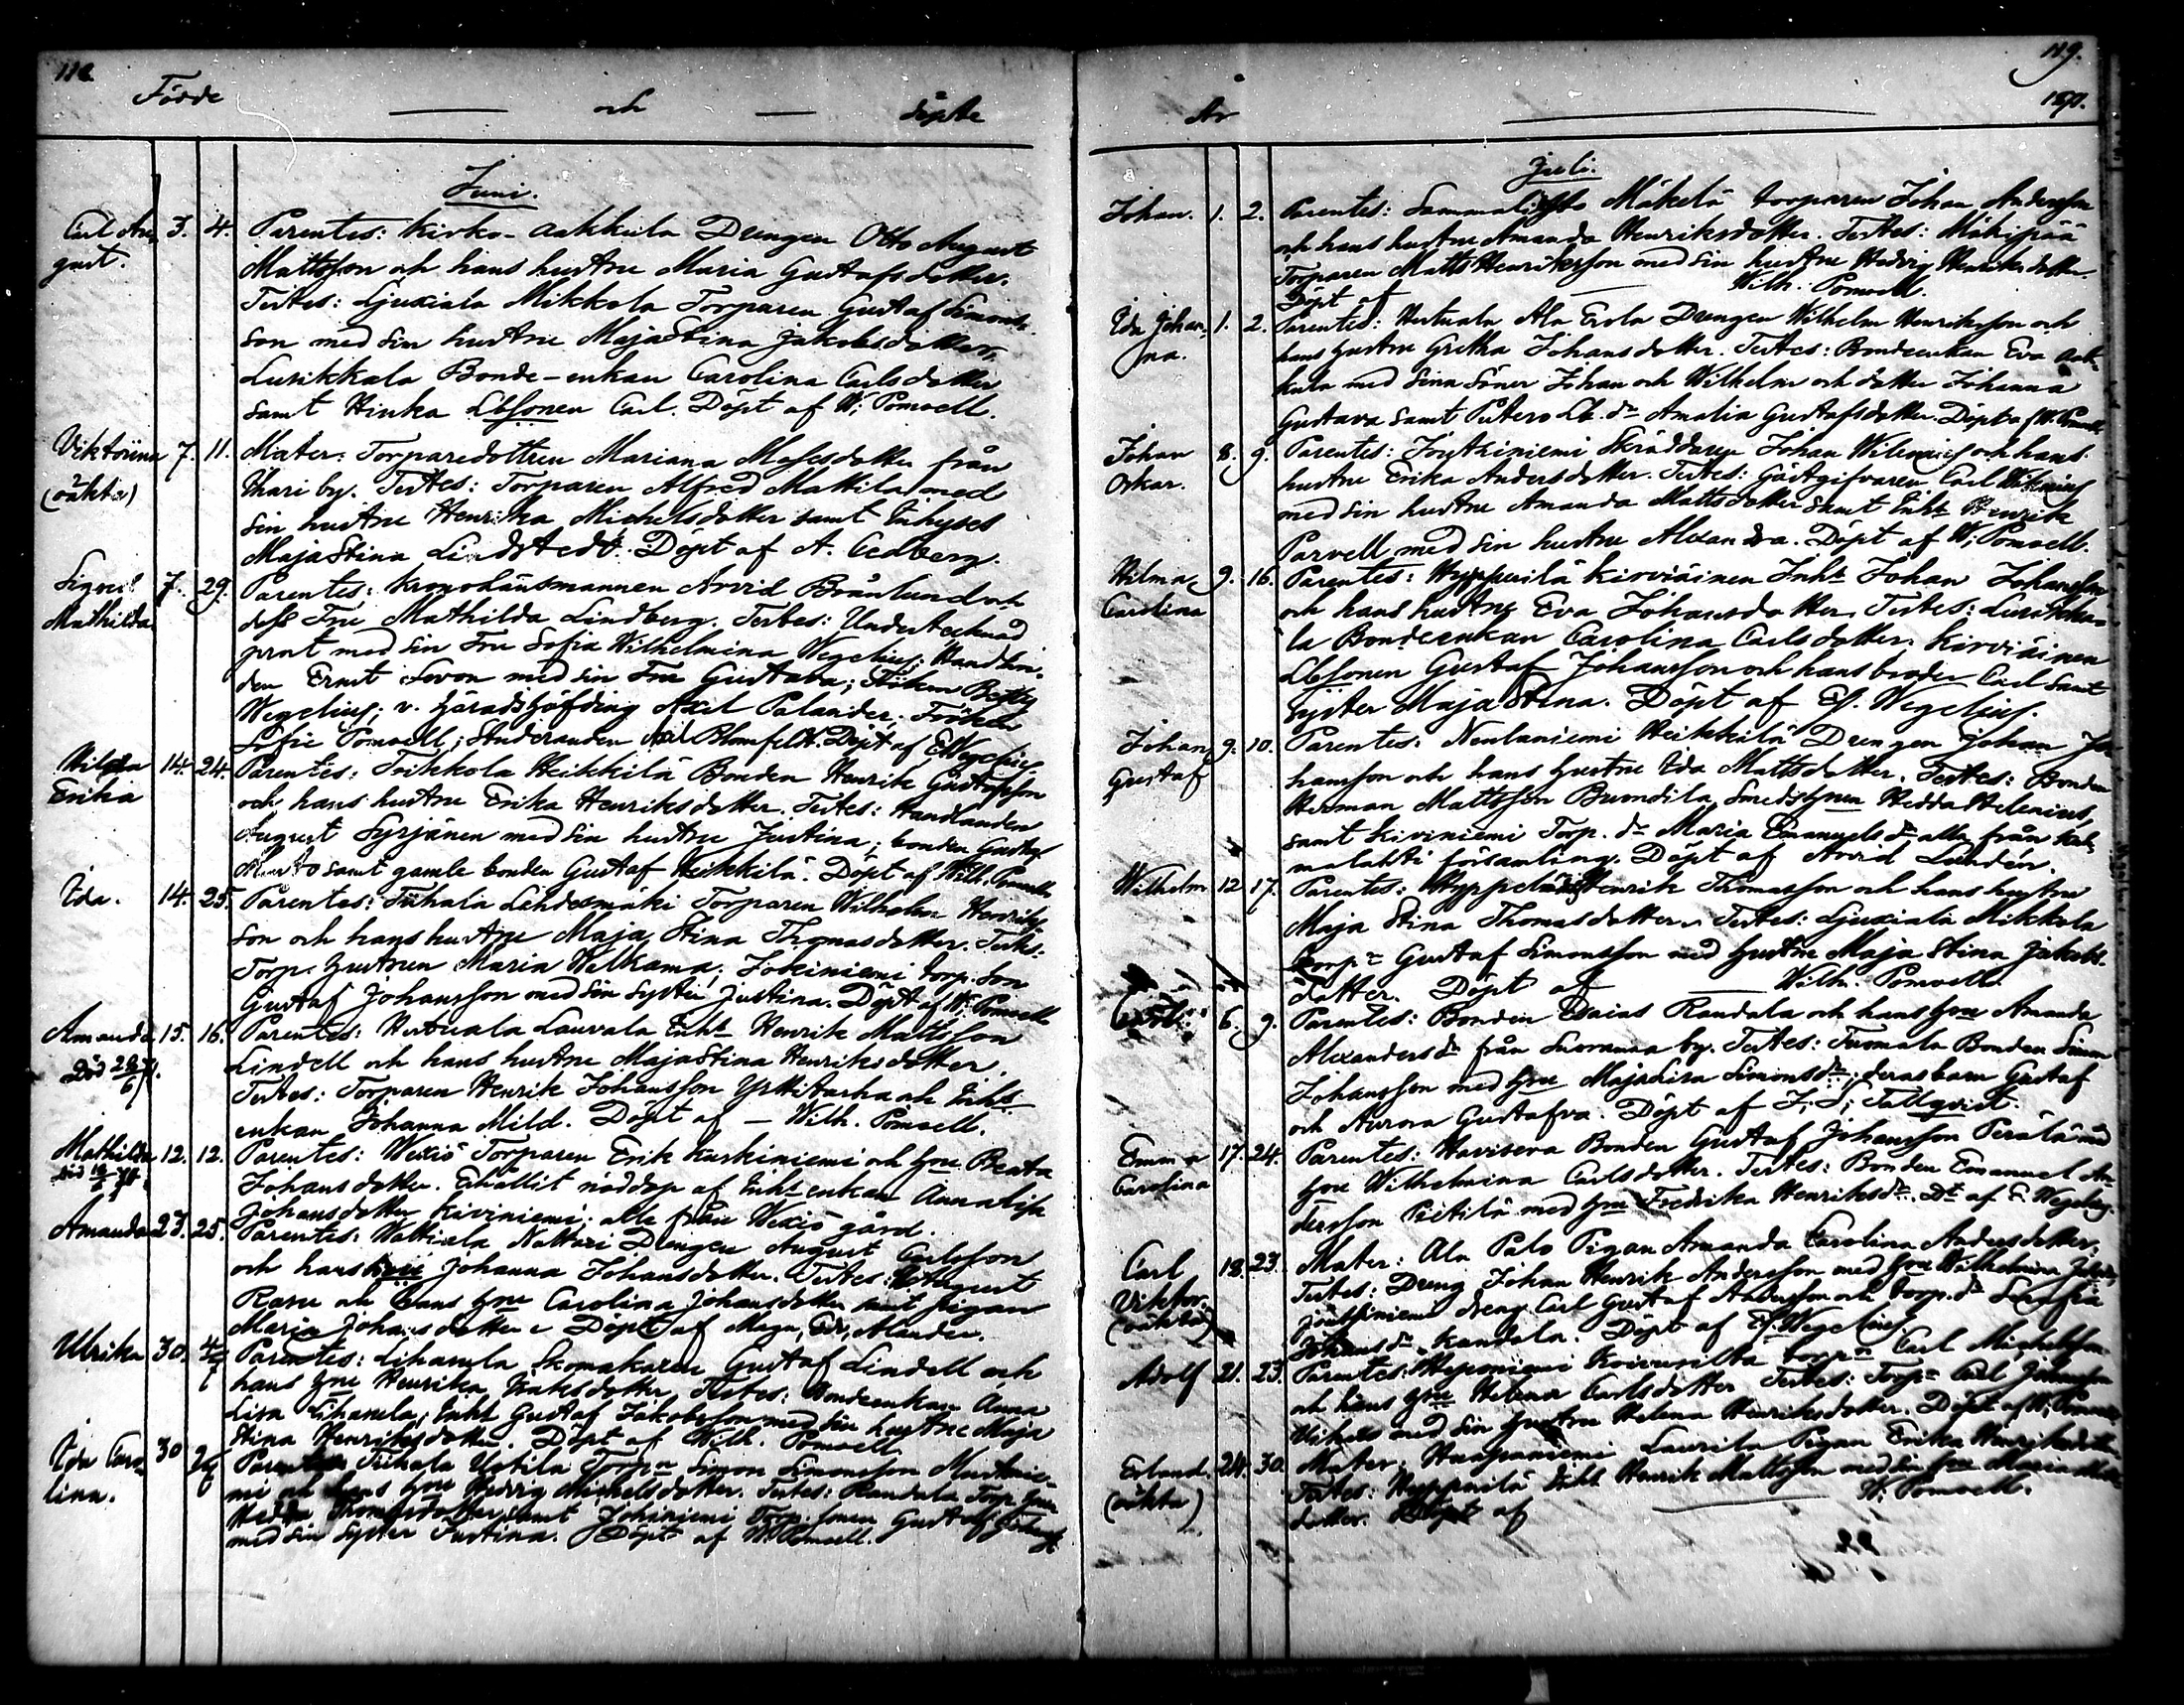 118.
Födde och döpte
Juni.
Carl Au- 3. 4. Parentes: Kirko-Aakkula Drengen Otto August
gust. Mattsson och hans hustru Maria Gustafsdotter.
Testes: Ljuxiala Mikkola Torparen Gustaf Simons-
son med sin hustru Maja Stina Jakobsdotter,
Lusikkala Bonde-enkan Carolina Carlsdotter
samt Hinka Lbsonen Carl. Döpt af W. Pomoell.
Viktorina 7. 11. Mater: Torparedottren Mariana Mosesdotter från
(oäkta) Ihari by. Testes: Torparen Alfred Mattila med
sin hustru Henrika Michelsdotter samt Inhyses
Maja Stina Lindstedt. Döpt af A. Cedberg.
Signe 7. 29. Parentes: Kronolänsmannen Arvid Brånlund och
Mathilda dess Fru Mathilda Lindberg. Testes: Undertecknad
prost med sin Fru Sofia Wilhelmina Wegelius; Handlan-
den Ernst Sevon med sin Fru Gustava; Fröken Betty
Wegelius; v. Häradshöfding Axel Palander; Fröken
Sofie Pomoell; Studeranden Axel Blomfeldt. Döpt af E. Wegelius
Hilda 14. 24. Parentes: Toikkola Heikkilä Bonden Henrik Gustafsson
Erika och hans hustru Erika Henriksdotter. Testes: Handlanden
August Syrjänen med sin hustru Justina; bonden Gustaf
samt gamle bonden Gustaf Heikkilä. Döpt af Wilh. Pomoell
Ida. 14. 25. Parentes: Tiihala Lähdesmäki Torparen Wilhelm Henriks-
son och hans hustru Maja Stina Thomasdotter. Testes:
Torp. hustrun Maria Welkama; Jokiniemi torp. son
Gustaf Johansson med sin syster Justina. Döpt af W. Pomoell
Amanda 15. 16. Parentes: Hertuala Laurala Inhs Henrik Mattsson
Död 26/6 71. Lindell och hans hustru Maja Stina Henriksdotter.
Testes: Torparen Henrik Johansson Yrttitarha och Inhs
enkan Johanna Mild. Döpt af — Wilh. Pomoell.
Mathilda 12. 12. Parentes: Wexiö Torparen Erik Kaskiniemi och hru Beata
Johansdotter. Erhållit nöddop af Inhs enkan Annalisa
Johansdotter Kiviniemi; alla från Wexiö gård.
Amanda 23. 25. Parentes: Wattiala Nattari Drengen August Carlsson
och hans hru Johanna Johansdotter. Testes: August
och hans hru Carolina Johansdotter samt pigan
Maria Johansdotter. Döpt af
Ulrika 30. 4/7 Parentes: Lihasula Skomakaren Gustaf Lindell och
hans hru Henrika Isaksdotter. Testes: Bondeenkan Anna
Lisa Lihasula; Inhs Gustaf Jakobsson med sin hustru Maja
Stina Henriksdotter. Döpt af Wilh. Pomoell
Ida Caro- 30 Parentes Tiihala Uotila Torpn Simon Simonsson
lina. och hans hru Hedvig Michelsdotter. Testes: Randala Torp. hru
Hedda Thomasdotter samt Jokiniemi Torp. sonen Gustaf Johanss.
med sin syster Justina. Döpt af W. Pomoell.
119.
År 1871.
Juli.
Johan. 1. 2. Parentes: Sammalisto Mäkelä torparen Johan Andersson
och hans hustru Amanda Henriksdotter. Testes: Mäkipää
Torparen Matts Henriksson med sin hustru Hedvig Henriksdotter.
Döpt af — Wilh. Pomoell.
Ida Johan- 1. 2. Parentes: Hertuala Ala Erola Drengen Wilhelm Henriksson och
na. hans hustru Gretha Johansdotter. Testes: Bondeenkan Eva Aak-
kula med sina söner Johan och Wilhelm och dotter Johanna
Gustava samt Puntero Lb. dr Amalia Gustafsdotter. Döpt af W. Pomoell
Johan 8. 9. Parentes: Joutsiniemi Skräddaren Johan Wilenius och hans
Oskar. hustru Erika Andersdotter. Testes: Gästgifvaren Carl
med sin hustru Amanda Mattsdotter samt Inhs Henrik
Parvell med sin hustru Alexandra. Döpt af W. Pomoell.
Hilma 9. 16. Parentes: Hyppärilä Kirviäinen Inhs Johan Johansson
Carolina och hans hustru Eva Johansdotter. Testes: Lusikka-
la Bondeenkan Carolina Carlsdotter. Kirviäinen
Lbsonen Gustaf Johansson och hans broder Carl samt
syster Maja Stina. Döpt af Ef. Wegelius.
Johan 9. 10. Parentes: Neulaniemi Heikkilä Drengen Johan Jo-
Gustaf hansson och hans hustru Ida Mattsdotter. Testes: Bonden
Herman Mattsson Smedshrun Hedda Helenius,
samt Kiviniemi Torp. dr Maria Emanuelsdr, alla från Kal-
malahti församling. Döpt af Arvid Lundén.
Wilhelm 12 17. Parentes: Henrik Thomasson och hans hustru
Maja Stina Thomasdotter. Testes: Ljuxiala Mikkola
Torpn Gustaf Simonsson med hustru Maja Stina Jakobs-
dotter. Döpt af — Wilh. Pomoell.
6. 9. Parentes: Bonden Esaias Randala och hans hru Amanda
Alexandersdr från Suorama by. Testes: Tuomala Bonden Simon
Johansson med hru Majalisa Simonsdr; deras barn Gustaf
och Aurora Gustafva. Döpt af J. J. Tallqvist.
Emma 17. 24. Parentes: Haviseva Bonden Gustaf Johansson Perälä med
Carolina hru Wilhelmina Carlsdotter. Testes: Bonden Emanuel An-
dersson Pietilä med hru Fredrika Henriksdr. Dt af E. Wegelius.
Carl 18. 23. Mater: Ala Palo Pigan Amanda Carolina Andersdotter.
Viktor. Testes: Dreng Johan Henrik Andersson med hru Wilhelmina
(oäkta) dreng Carl Gustaf och torp. dr Serafia
Johansdr Randala. Döpt af Ef. Wegelius.
Adolf 21. 23. Parentes: Koivusilta torpn Carl Michelsson
och hans hru Helena Carlsdotter Testes: Torpn Carl Johansson
med sin hustru Helena Henriksdotter. Döpt af W. Pomoell
Erland. 24. 30. Mater: Haapaniemi Laurila Pigan Erika Henriksdotter
(oäkta) Testes: Hyppärilä Inhs Henrik Mattsson med sin hru Maria
dotter. Döpt af — W. Pomoell.